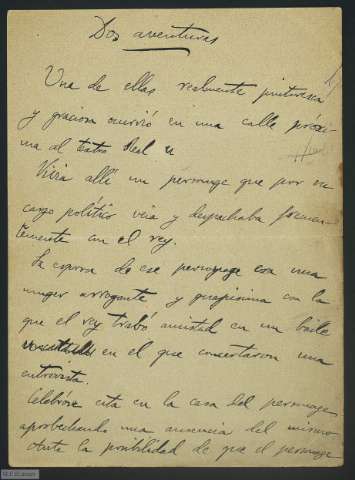 Dos aventuras
Una de ellas realmente pintoresca
y graciosa ocurrió en una calle próxi-
ma al teatro Real
Vivia alli un personage que por su
cargo politico veia y despachaba frecuen-
temente con el rey.
La esposa de ese personage era una
muger arrogante y guapisima con la
que el rey trabó amistad en un baile
en el que concertaron una
entrevista.
Celebróse esta en la casa del personage
aprobechando una ausencia del mismo
Ante la posibilidad de que el personage